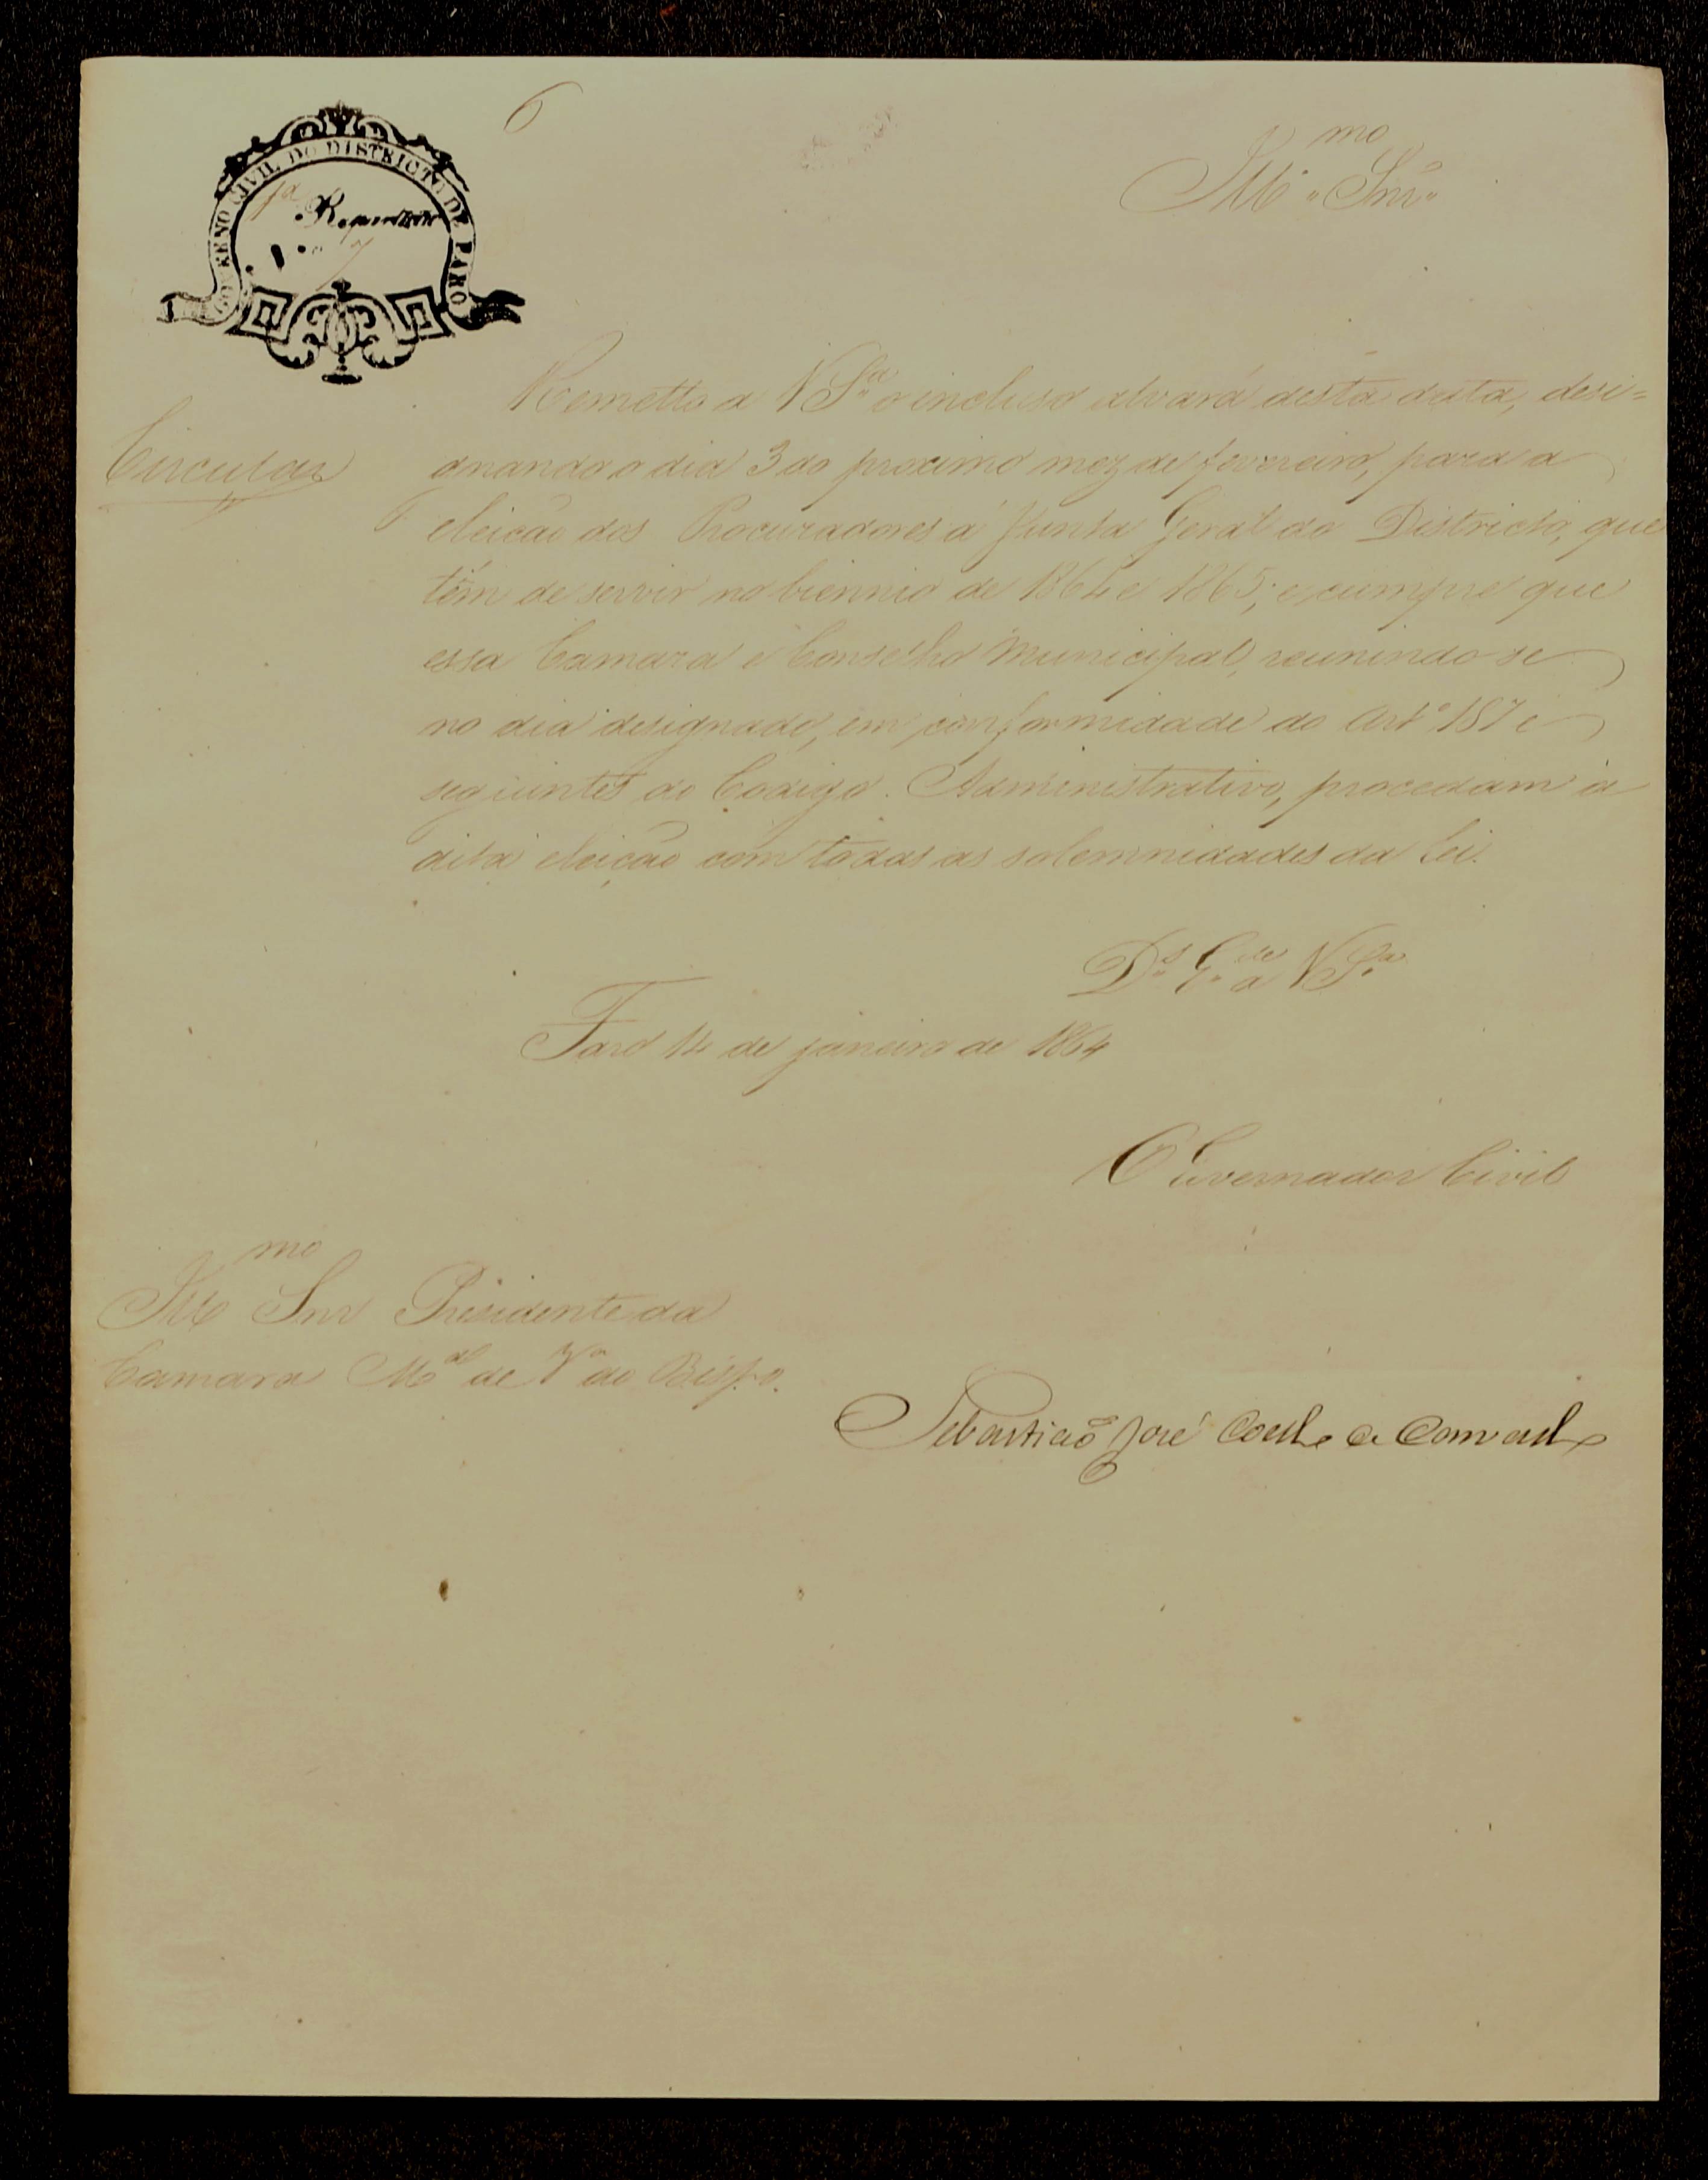 6
GOVERNO CIVIL DO DISTRICTO DE FARO
1ª Repartição
N.º 7
Ill.mo Snr.
Circular
Remetto a V S.ª o incluso alvará desta data, desi=
gnando o dia 3 do proximo mez de fevereiro, para a
eleição dos Procuradores á Junta Geral do Districto, que
têm de servir no biennio de 1864 e 1865; e cumpre que
essa Camara e Conselho Municipal, reunindo-se
no dia designado, em conformidade do Artº 187 e
seguintes do Codigo Administrativo, procedam á
dita eleição com todas as solemnidades da Lei.
D.s G.de a V S.ª
Faro 14 de janeiro de 1864
O Governador Civil
Ill.mo Snr Presidente da
Camara M.al de Vª do Bispo.
Sebastião José Coelho de Carvalho